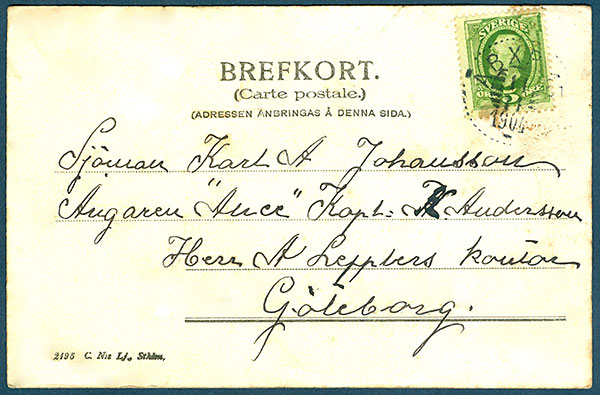 SVERIGE
5
ÖRE
1904
BREFKORT.
(Carte postale.)
(ADRESSEN ANBRINGAS Å DENNA SIDA.)
Sjöman Karl A Johansson
Ångaren "Alice" Kapt: K Andersson
Herr A Lepplers kontor
Göteborg.
2195 C. Nis Lj., Sthlm.